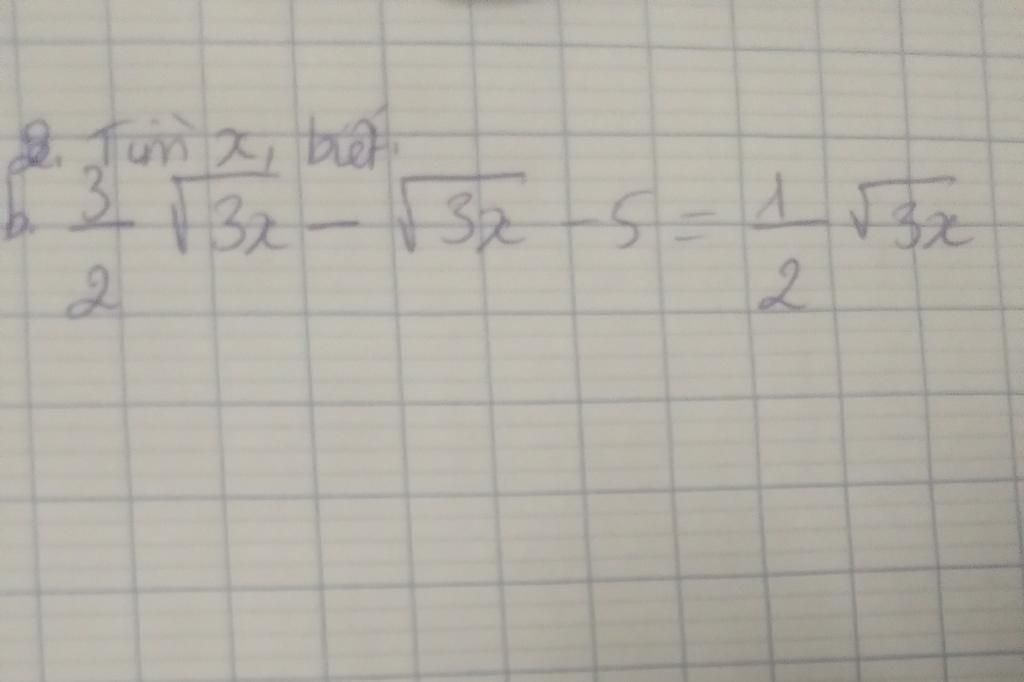 2. Tìm x, biết.
b. 3/2 √3x - √3x - 5 = 1/2 √3x